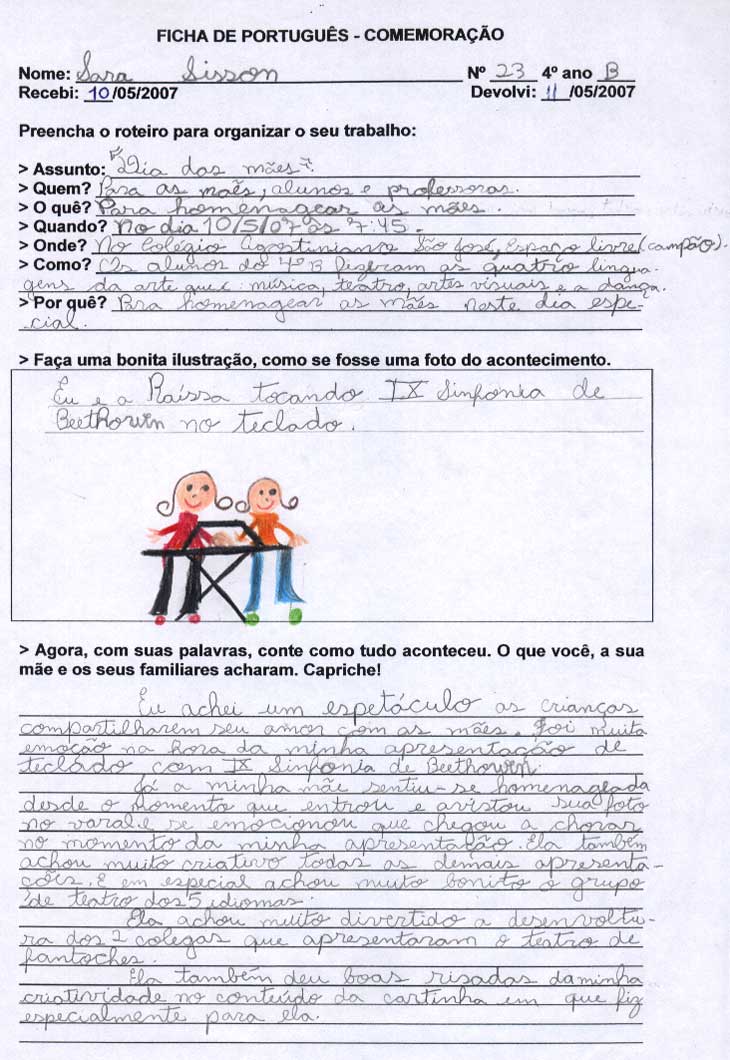 FICHA DE PORTUGUÊS - COMEMORAÇÃO
Nome: Sara Sisson Nº 23 4º ano B
Recebi: 10/05/2007 Devolvi: 11/05/2007
Preencha o roteiro para organizar o seu trabalho:
> Assunto: "Dia das mães".
> Quem? Para as maẽs, alunos e professoras.
> O quê? Para homenagear as mães.
> Quando? No dia 10/5/07 às 7:45.
> Onde? No Colégio Agostiniano São José, Espaço livre (campão).
> Como? Os alunos do 4º B fizeram as quatrio lingua-
gens da arte que é: música, teatro, artes visuais e a dança.
> Por quê? Para homenagear as mães neste dia espe-
cial.
> Faça uma bonita ilustração, como se fosse uma foto do acontecimento.
Eu e a Raíssa tocando IX Sinfonia de
Beethowen no teclado.
> Agora, com suas palavras, conte como tudo aconteceu. O que você, a sua
mãe e os seus familiares acharam. Capriche!
Eu achei um espetáculo as crianças
compartilharem seu amor com as mães. Foi muita
emoção na hora da minha apresentação de
teclado com IX Sinfonia de Beethowen.
Já a minha mãe sentiu-se homenageada
desde o momento que entrou e avistou sua foto
no varal e se emocionou que chegou a chorar
no momento da minha apresentação. Ela também
achou muito criativo todas as demais apresenta-
ções. E em especial achou muito bonito o grupo
de teatro dos 5 idiomas.
Ela achou muito divertido a desenvoltu-
ra dos 2 colegas que apresentaram o teatro de
fantoches.
Ela também deu boas risadas da minha
criatividade no conteúdo da cartinha em que fiz
especialmente para ela.